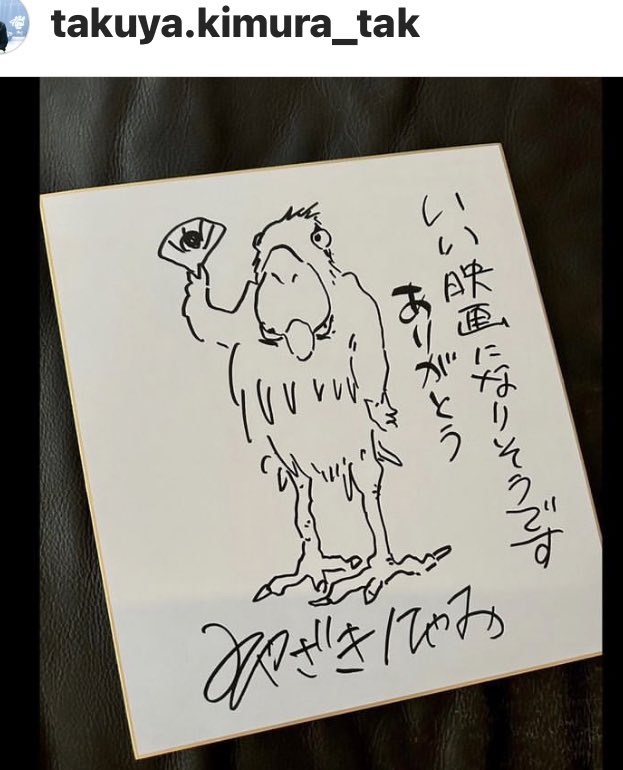 takuya.kimura_tak
いい映画になりそうです
ありがとう
みやざきはやお